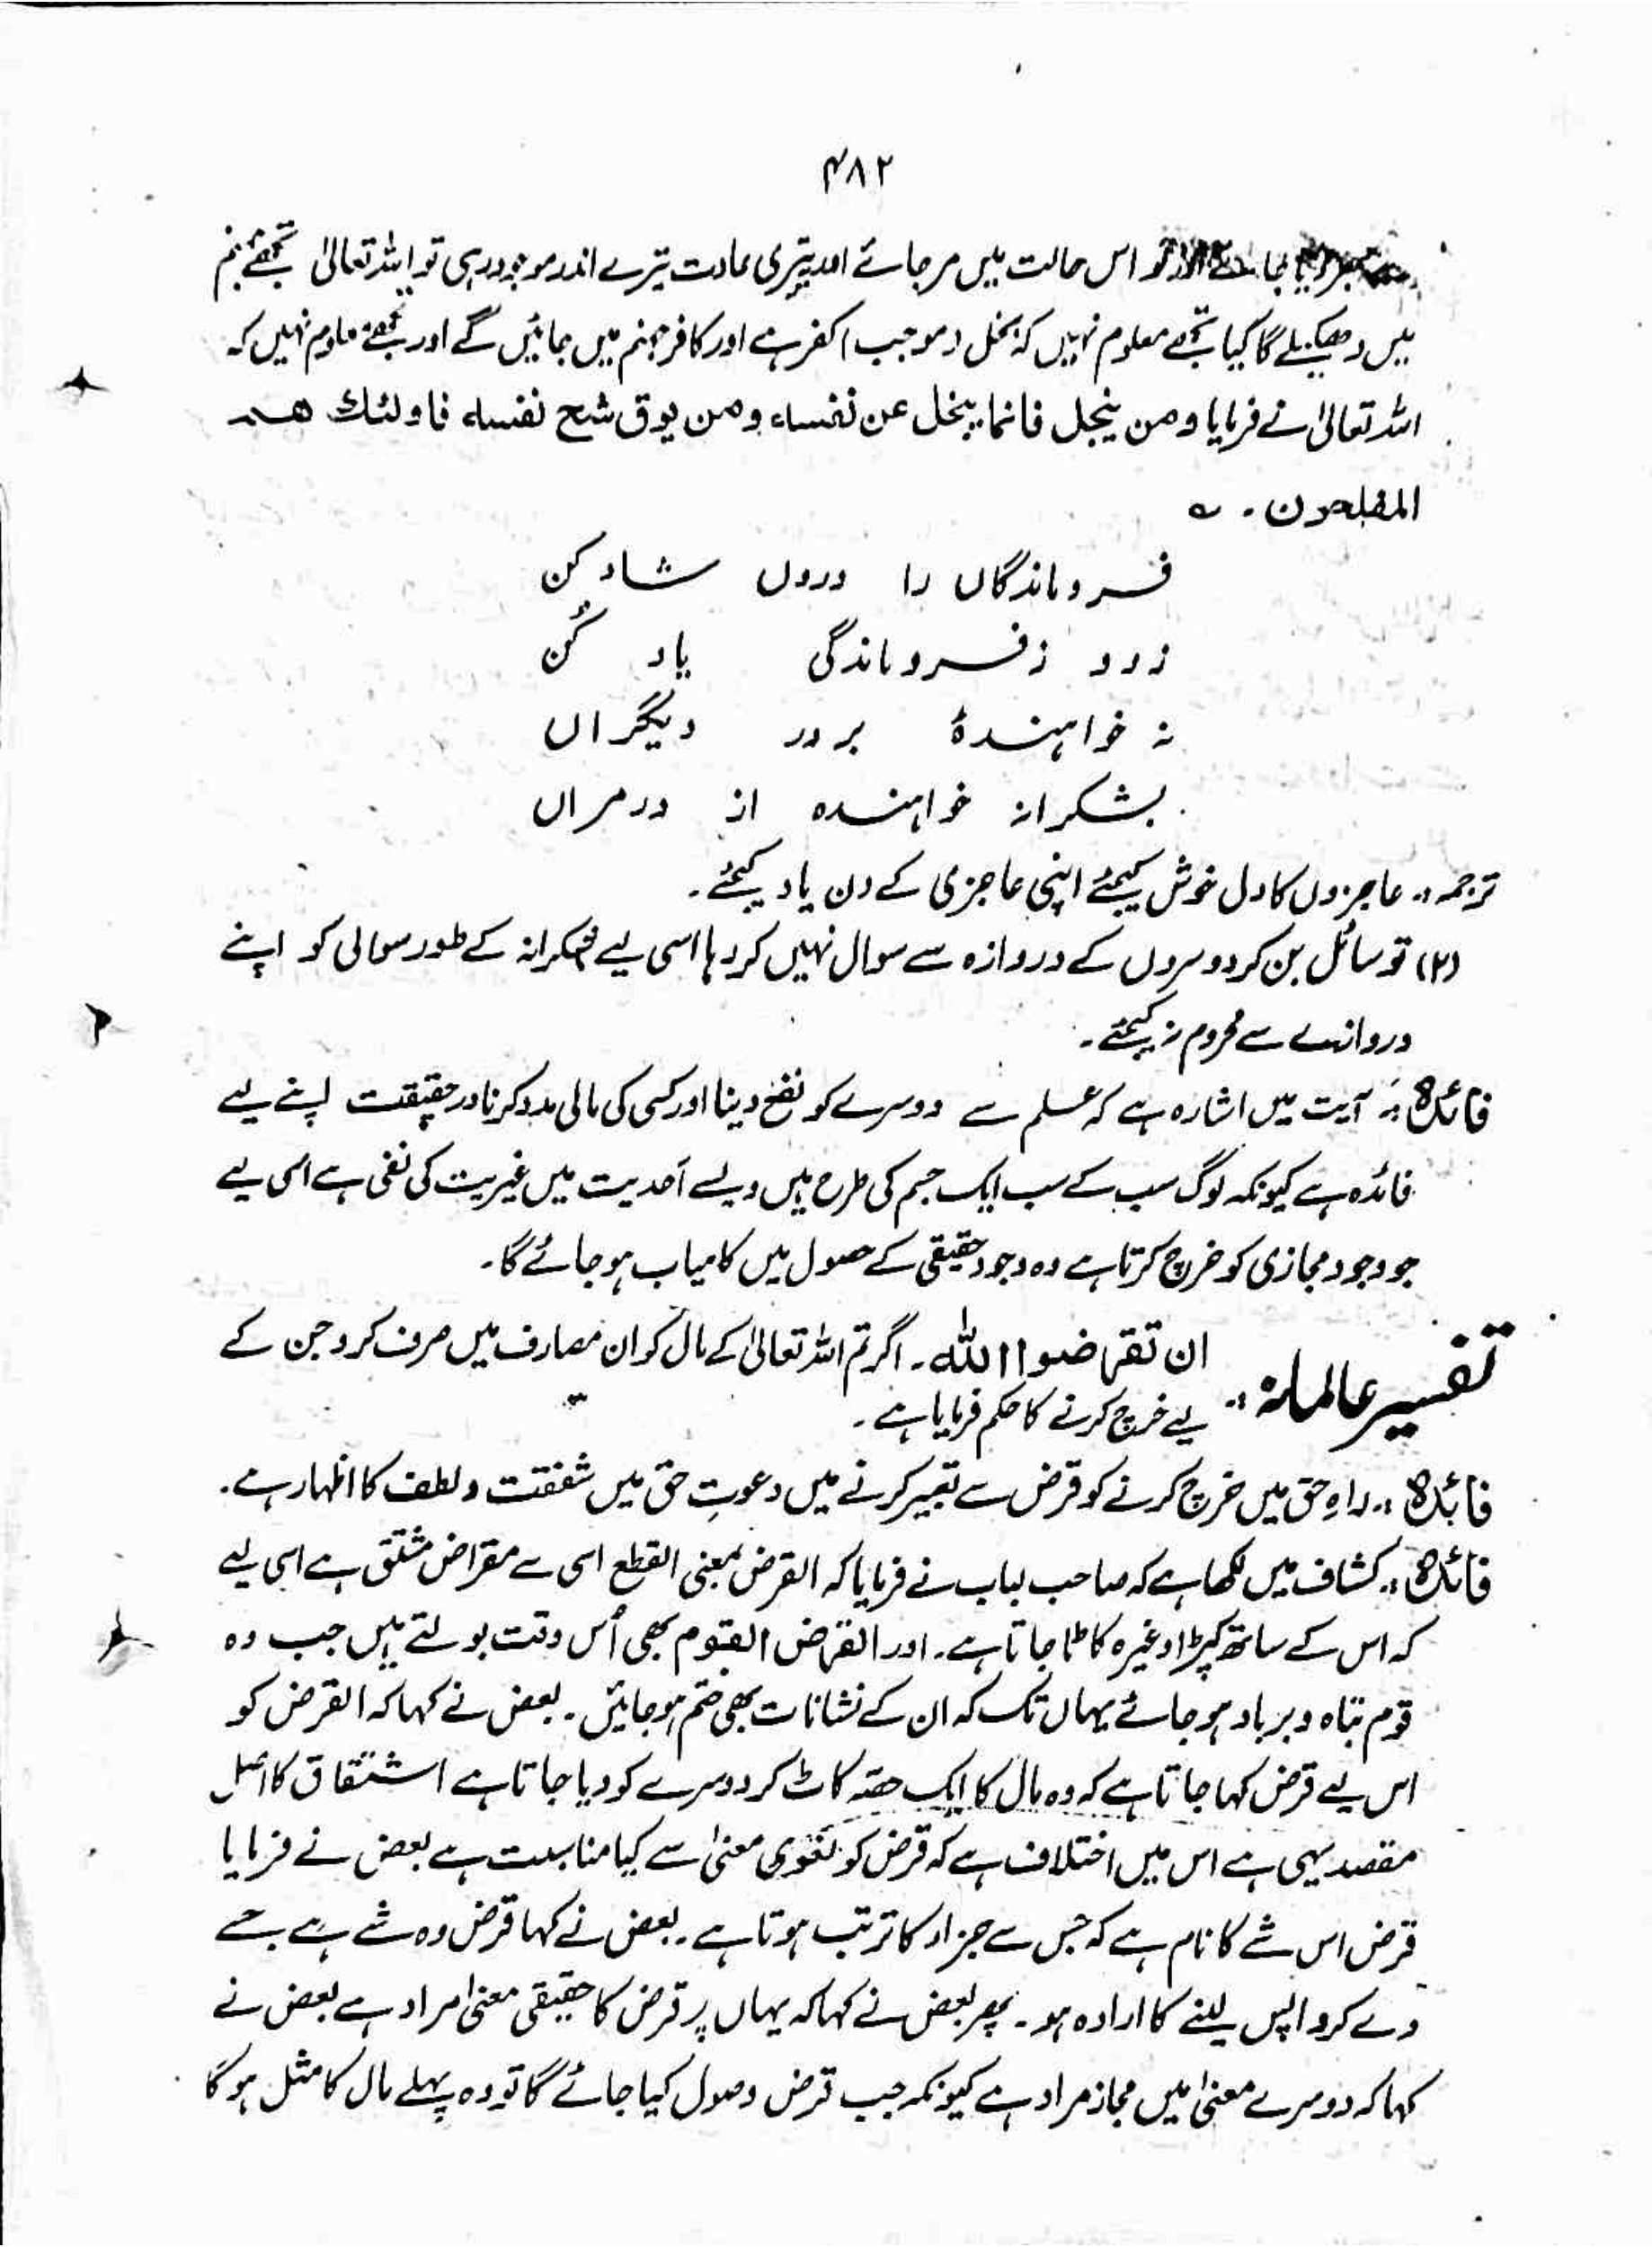 ۴۸۲
اس حالت میں مرجائے اور تیری عادت تیرے اندر موجود رہی تو اللہ تعالیٰ تجھے جہنم
میں دھکیلے گا کیا تجھے معلوم نہیں کہ بخل (موجب) کفر ہے اور کافر جہنم میں جائیں گے اور تجھے معلوم نہیں کہ
اللہ تعالیٰ نے فرمایا ومن یبخل فانما یبخل عن نفسہ ومن یوق شح نفسہ فاولئک ھم
المفلحون ۔ ؎
فروماندگاں را دروں شاد کن
زروز فروماندگی یاد کُن
نہ خواہندۂ بردر دیگراں
بشکرانہ خواہندہ از در مراں
ترجمہ :۔ عاجزوں کا دل خوش کیجئے اپنی عاجزی کے دن یاد کیجئے ۔
(۲) تو سائل بن کر دوسروں کے دروازہ سے سوال نہیں کر رہا اسی لیے شکرانہ کے طور سوالی کو اپنے
دروازے سے محروم نہ کیجئے ۔
فائدہ :۔ آیت میں اشارہ ہے کہ علم سے دوسرے کو نفع دینا اور کسی کی مالی مدد کرنا درحقیقت اپنے لیے
فائدہ ہے کیونکہ لوگ سب کے سب ایک جسم کی طرح ہیں ویسے اَحدیت میں غیریت کی نفی ہے اسی لیے
جو وجود مجازی کو خرچ کرتا ہے وہ وجود حقیقی کے حصول میں کامیاب ہو جائے گا ۔
تفسیر عالمانہ :۔ ان تقرضوا اللہ ۔ اگر تم اللہ تعالیٰ کے مال کو ان مصارف میں صرف کرو جن کے
لیے خرچ کرنے کا حکم فرمایا ہے ۔
فائدہ :۔ راہِ حق میں خرچ کرنے کو قرض سے تعبیر کرنے میں دعوتِ حق میں شفقت و لطف کا اظہار ہے ۔
فائدہ :۔ کشاف میں لکھا ہے کہ صاحب لباب نے فرمایا کہ القرض بمعنی القطع اسی سے مقراض مشتق ہے اسی لیے
کہ اس کے ساتھ کپڑا وغیرہ کاٹا جاتا ہے ۔ اور انقراض القوم بھی اُس وقت بولتے ہیں جب وہ
قوم تباہ و برباد ہو جائے یہاں تک کہ ان کے نشانات بھی ختم ہو جائیں ۔ بعض نے کہا کہ القرض کو
اس لیے قرض کہا جاتا ہے کہ وہ مال کا ایک حصّہ کاٹ کر دوسرے کو دیا جاتا ہے اشتقاق کا اصل
مقصد یہی ہے اس میں اختلاف ہے کہ قرض کو لغوی معنیٰ سے کیا مناسبت ہے بعض نے فرمایا
قرض اس شے کا نام ہے کہ جس سے جزاء کا ترتب ہوتا ہے ۔ بعض نے کہا قرض وہ شے ہے جسے
دے کر واپس لینے کا ارادہ ہو ۔ پھر بعض نے کہا کہ یہاں پر قرض کا حقیقی معنیٰ مراد ہے بعض نے
کہا کہ دوسرے معنیٰ میں مجاز مراد ہے کیونکہ جب قرض وصول کیا جائے گا تو وہ پہلے مال کا مثل ہو گا